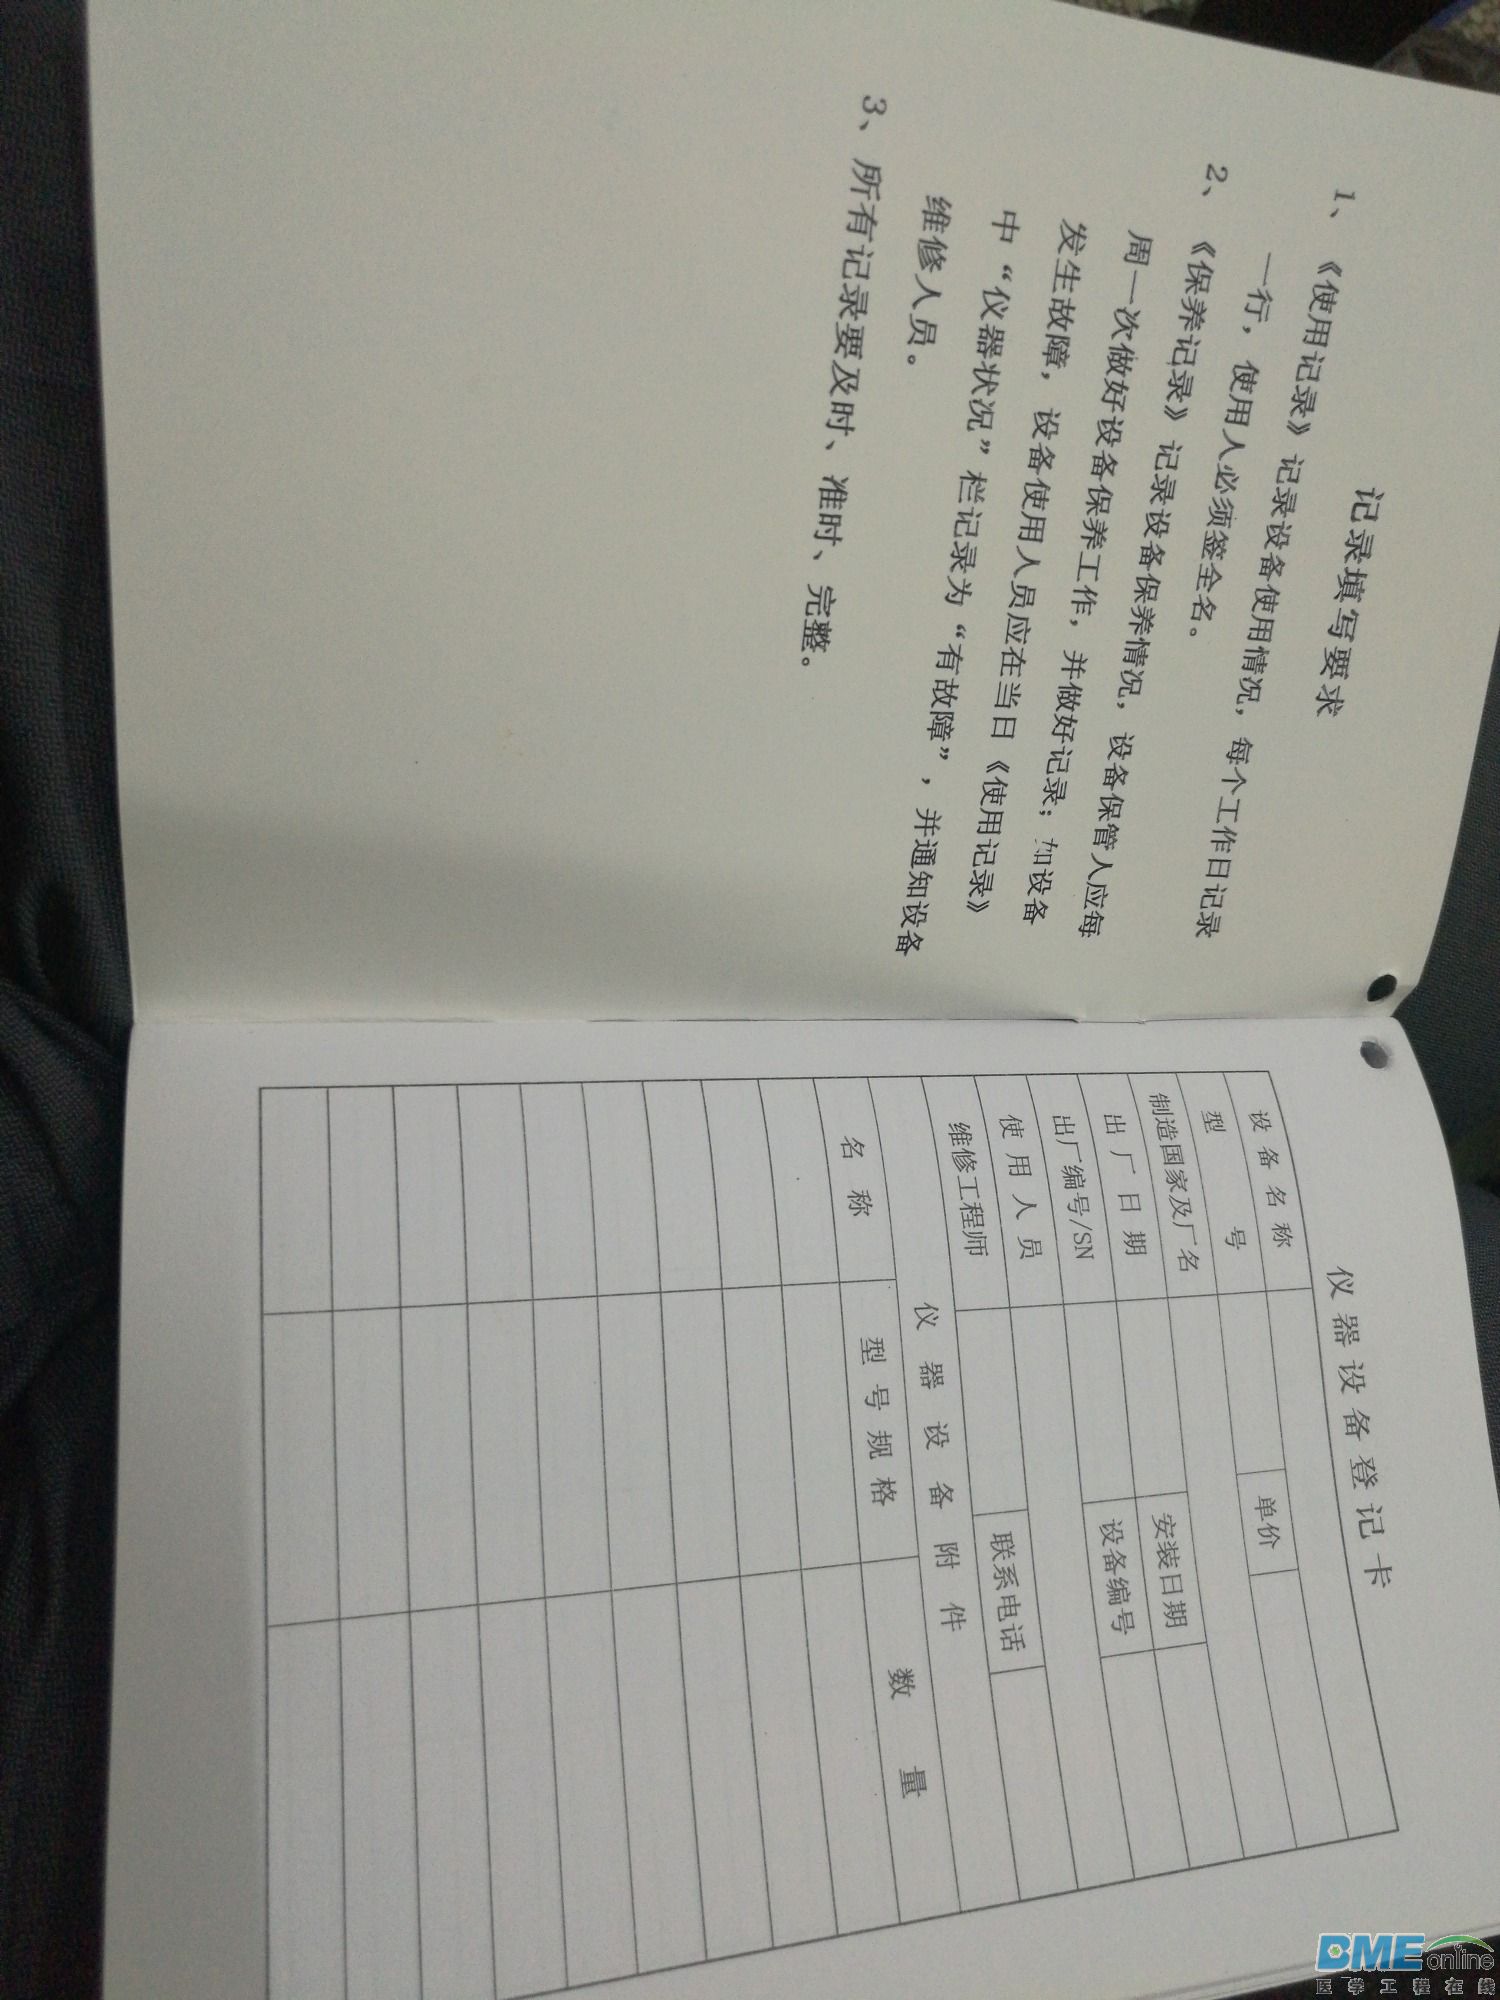 记录填写要求
1、《使用记录》记录设备使用情况，每个工作日记录
一行，使用人必须签全名。
2、《保养记录》记录设备保养情况，设备保管人应每
周一次做好设备保养工作，并做好记录；如设备
发生故障，设备使用人员应在当日《使用记录》
中“仪器状况”栏记录为“有故障”，并通知设备
维修人员。
3、所有记录要及时、准时、完整。
仪器设备登记卡
设备名称
型号 单价
制造国家及厂名
出厂日期 安装日期
出厂编号/SN 设备编号
使用人员
维修工程师 联系电话
仪器设备附件
名称 型号规格 数量
BME online
医学工程在线